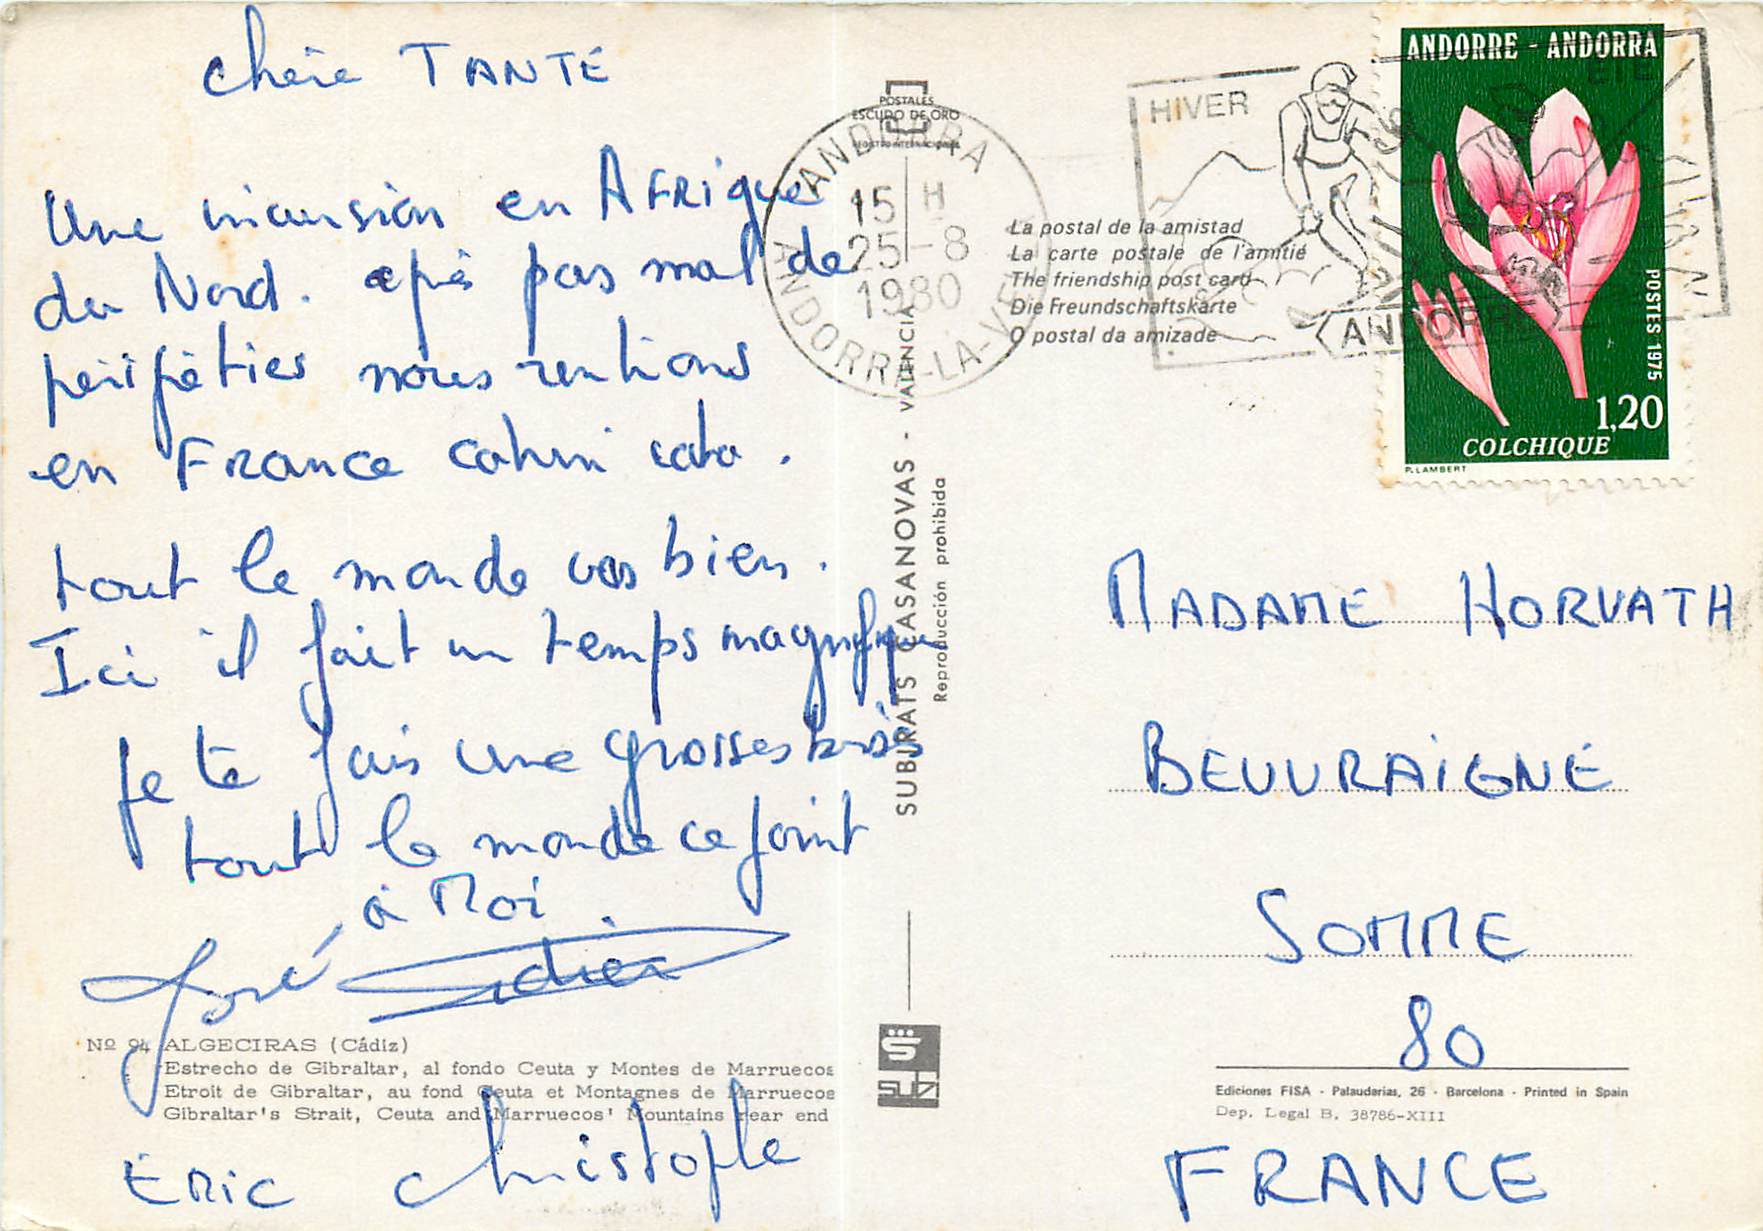 Chère TANTE
Une incursion en AFRique
du Nord. après pas mal de
périfièties nous rentrons
en FRANCE cahin caha.
tout le monde vas bien.
Ici il fait un temps magnifique
je te fais une grosses bises
tout le monde ce joint
à Moi.
José Didier
ERIC Christophe
Nº 94 ALGECIRAS (Cádiz)
Estrecho de Gibraltar, al fondo Ceuta y Montes de Marruecos
Etroit de Gibraltar, au fond Ceuta et Montagnes de Marruecos
Gibraltar's Strait, Ceuta and Marruecos' Mountains rear end
POSTALES
ESCUDO DE ORO
REGISTRO INTERNACIONAL
SUBIRATS CASANOVAS - VALENCIA
Reproducción prohibida
SUBI
ANDORRA
15 H
25-8
1980
ANDORRA-LA-VIEILLE
La postal de la amistad
La carte postale de l'amitié
The friendship post card
Die Freundschaftskarte
O postal da amizade
HIVER
ETE
ANDORRE
ANDORRE - ANDORRA
POSTES 1975
1,20
COLCHIQUE
P. LAMBERT
MADAME HORVATH
BEUVRAIGNE
SOMME
80
Ediciones FISA - Palaudarias, 26 - Barcelona - Printed in Spain
Dep. Legal B. 38786-XIII
FRANCE